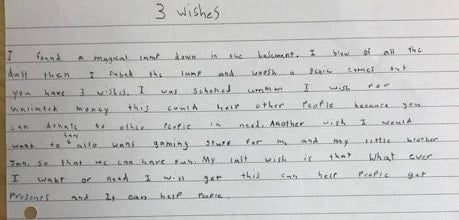 3 wishes
I found a magical lamp down in the basment. I blew of all the
dust then I rubed the lamp and woosh a Genie comes out
you have 3 wishes. I was schoked ummm I wish for
unlimited money this could help other People because you
can donate to other People in need. Another wish I would
want to have also want gaming stuff for me and my little brother
so that we can have fun. My last wish is that What ever
I want or need I will get this can help People get
Presents and It can help People.